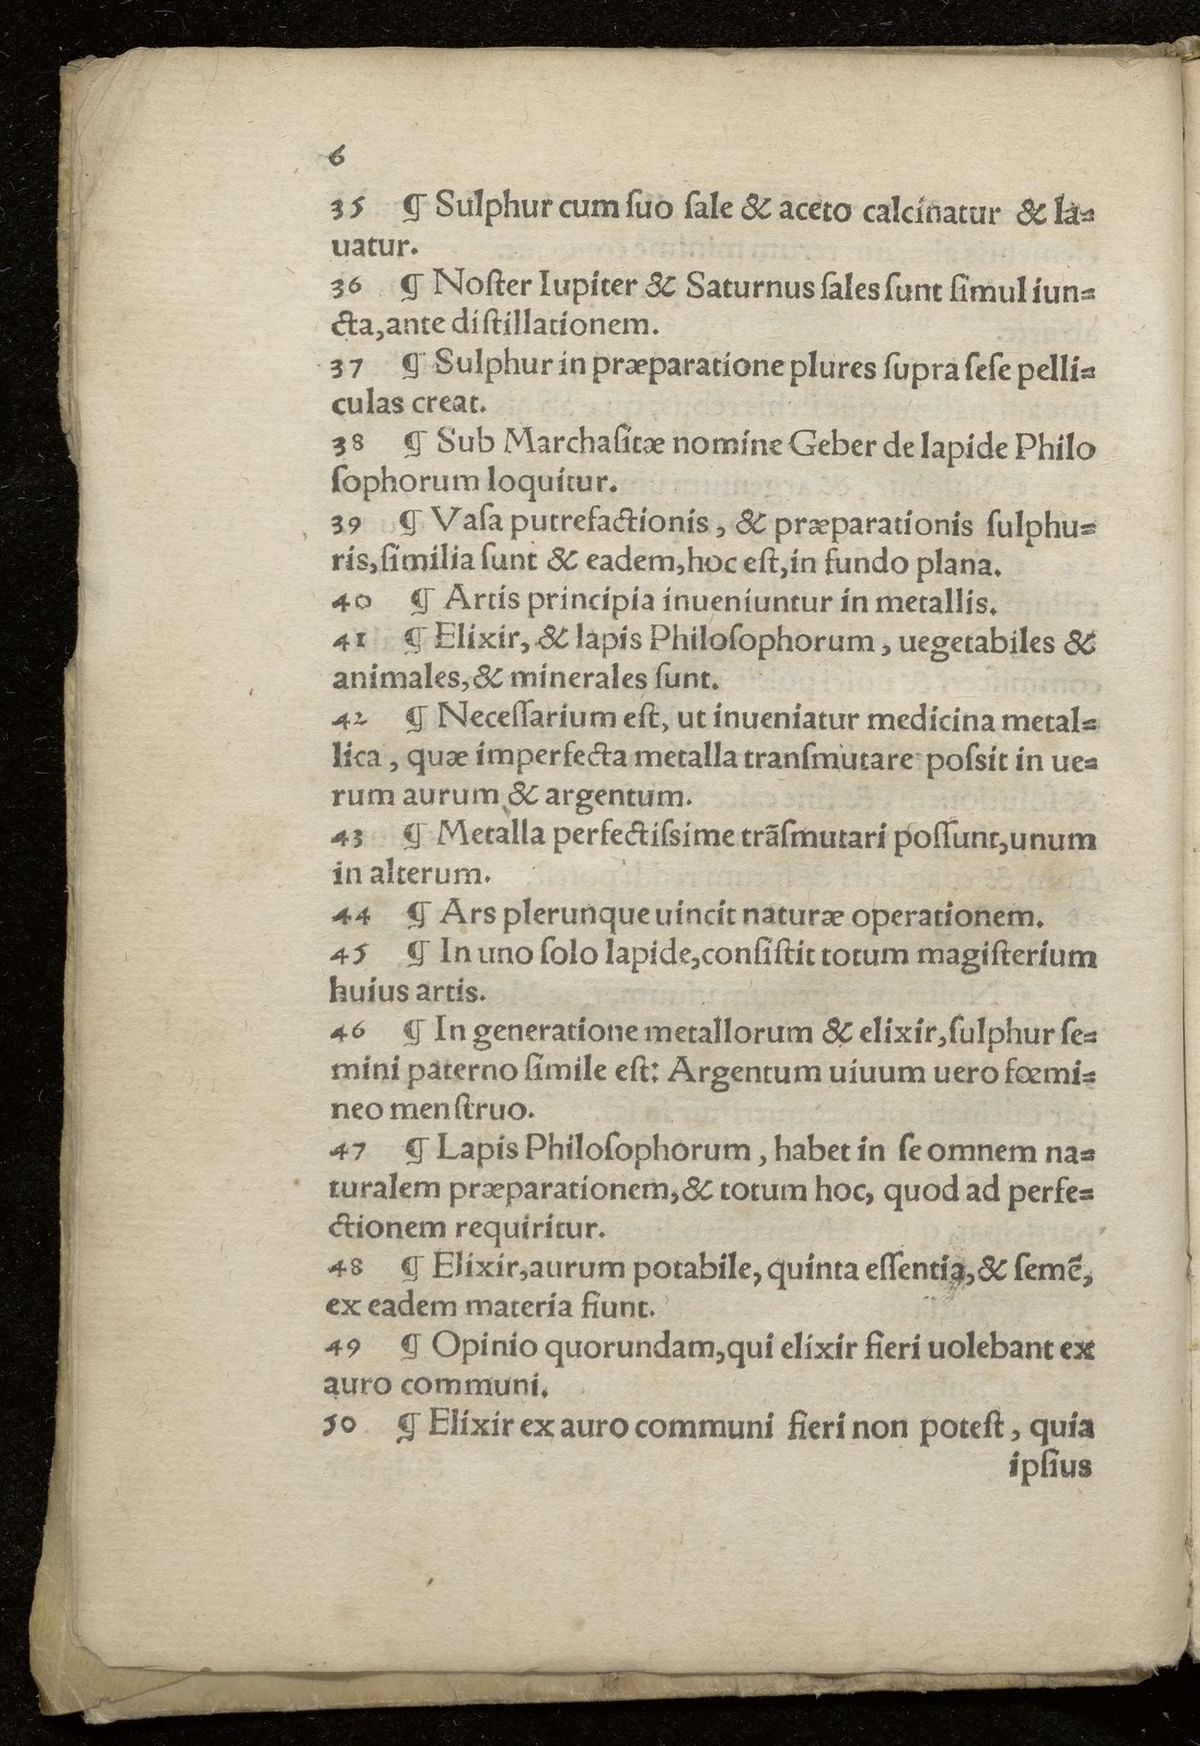 6
35 ¶ Sulphur cum ſuo ſale & aceto calcinatur & la⸗
uatur.
36 ¶ Noſter Iupiter & Saturnus ſales ſunt ſimul iun⸗
cta,ante diſtillationem.
37 ¶ Sulphur in præparatione plures ſupra ſeſe pelli⸗
culas creat.
38 ¶ Sub Marchaſitæ nomine Geber de lapide Philo
ſophorum loquitur.
39 ¶ Vaſa putrefactionis, & præparationis ſulphu⸗
ris,ſimilia ſunt & eadem,hoc eſt,in fundo plana.
40 ¶ Artis principia inueniuntur in metallis.
41 ¶ Elixir, & lapis Philoſophorum, uegetabiles &
animales,& minerales ſunt.
42 ¶ Neceſſarium eſt, ut inueniatur medicina metal⸗
lica, quæ imperfecta metalla tranſmutare poſsit in ue⸗
rum aurum & argentum.
43 ¶ Metalla perfectiſsime trãſmutari poſſunt,unum
in alterum.
44 ¶ Ars plerunque uincit naturæ operationem.
45 ¶ In uno ſolo lapide,conſiſtit totum magiſterium
huius artis.
46 ¶ In generatione metallorum & elixir,ſulphur ſe⸗
mini paterno ſimile eſt: Argentum uiuum uero fœmi⸗
neo menſtruo.
47 ¶ Lapis Philoſophorum, habet in ſe omnem na⸗
turalem præparationem,& totum hoc, quod ad perfe⸗
ctionem requiritur.
48 ¶ Elixir,aurum potabile, quinta eſſentia,& ſemẽ,
ex eadem materia fiunt.
49 ¶ Opinio quorundam,qui elixir fieri uolebant ex
auro communi.
50 ¶ Elixir ex auro communi fieri non poteſt, quia
ipſius